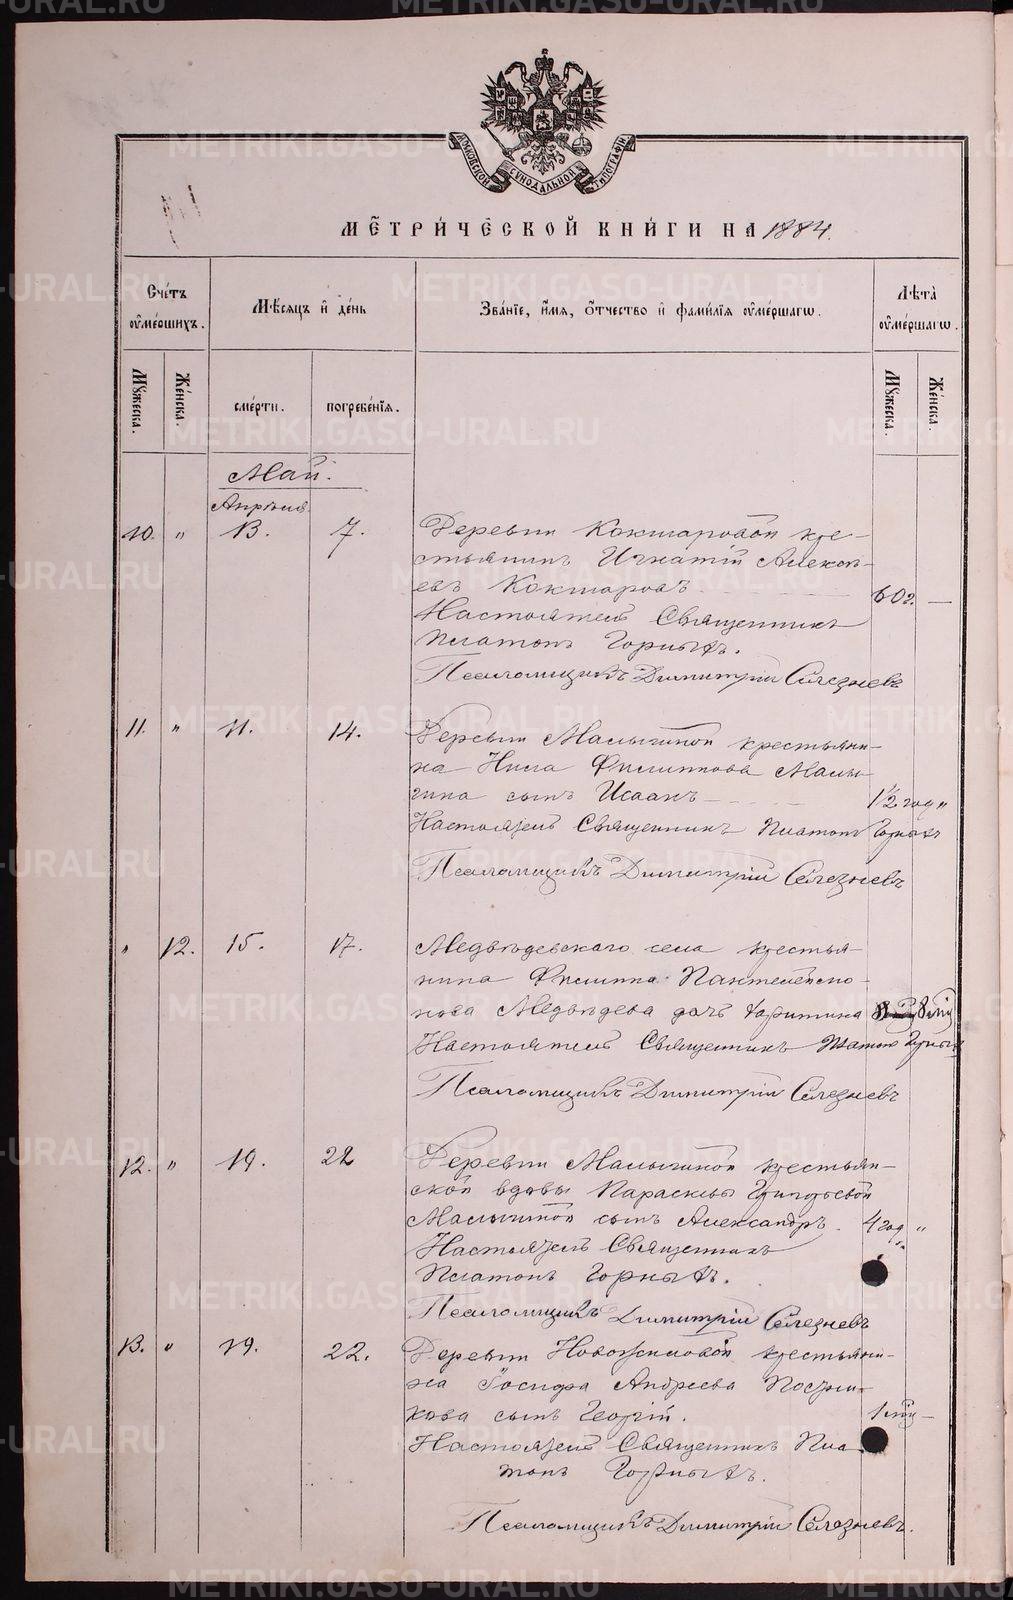 МОСКОВСКОЙ СУНОДАЛЬНОЙ ТИПОГРАФІИ
МЕТРИЧЕСКОЙ КНИГИ НА 1884.
Счетъ оумершихъ.
Мѣсяцъ и день
Званіе, имя, отчество и фамилія оумершагѡ.
Лѣта оумершагѡ.
Мужеска.
Женска.
смерти.
погребенія.
Мужеска.
Женска.
Май.
Апрѣля
10. " 13. 7. Деревни Кокшаровой кре-
стьянинъ Игнатій Алексѣ-
евъ Кокшаровъ 60 г. —
Настоятель Священникъ
Платонъ Горныхъ.
Псаломщикъ Димитрій Селезневъ
11. " 11. 14. Деревни Малыгиной крестьяни-
на Нила Филиппова Малы-
гина сынъ Исаакъ 1½ год "
Настоятель Священникъ Платонъ Горныхъ
Псаломщикъ Димитрій Селезневъ
" 12. 15. 17. Медвѣдевскаго села крестья-
нина Филиппа Пантелеймо-
нова Медвѣдева дочь Харитина
Настоятель Священникъ Платонъ Горныхъ
Псаломщикъ Димитрій Селезневъ
12. " 19. 22 Деревни Малыгиной крестьян-
ской вдовы Параскевы Григорьевой
Малыгиной сынъ Александръ. 4 год "
Настоятель Священникъ
Платонъ Горныхъ.
Псаломщикъ Димитрій Селезневъ
13. " 19. 22. Деревни Новожиловой крестьяни-
на Іосифа Андреева Постни-
кова сынъ Георгій. —
Настоятель Священникъ Пла
тонъ Горныхъ.
Псаломщикъ Димитрій Селезневъ.